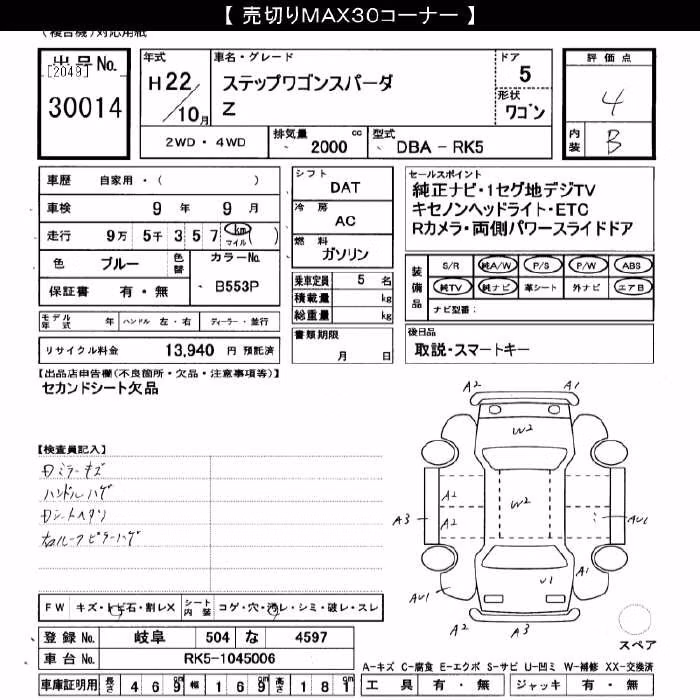 【 売切りMAX30コーナー 】
(複合機)対応用紙
出品No.
[2049]
30014
年式
H22/10月
車名・グレード
ステップワゴンスパーダ
Z
ドア
5
形状
ワゴン
評価点
4
内装
B
2WD・4WD
排気量 2000 cc
型式 DBA-RK5
車歴 自家用・( )
車検 9年 9月
走行 9万 5千 3 5 7 km マイル ( )
色 ブルー 色替 カラーNo.
保証書 有・無 B553P
モデル年式 年 ハンドル 左・右 ディーラー・並行
リサイクル料金 13,940 円 預託済
シフト
DAT
冷房
AC
燃料
ガソリン
乗車定員 5 名
積載量 kg
総重量 kg
書類期限
月 日
セールスポイント
純正ナビ・1セグ地デジTV
キセノンヘッドライト・ETC
Rカメラ・両側パワースライドドア
装備品
S/R 純A/W P/S P/W ABS
純TV 純ナビ 革シート 外ナビ エアB
ナビ型番:
後日品
取説・スマートキー
【出品店申告欄(不良箇所・欠品・注意事項等)】
セカンドシート欠品
【検査員記入】
ミラーキズ
ハンドルハゲ
シートヘタリ
右ルーフピラーハゲ
A2 A1
W2
A2
W2
A3 A2 AU1
U1 A1
AU1
A2 A3
スペア
FW キズ・トビ石・割レX シート内装 コゲ・穴・汚レ・シミ・破レ・スレ
登録No. 岐阜 504 な 4597
車台No. RK5-1045006
車庫証明用 長さ 469cm 幅 169cm 高さ 181cm
A-キズ C-腐食 E-エクボ S-サビ U-凹ミ W-補修 XX-交換済
工具 有・無 ジャッキ 有・無